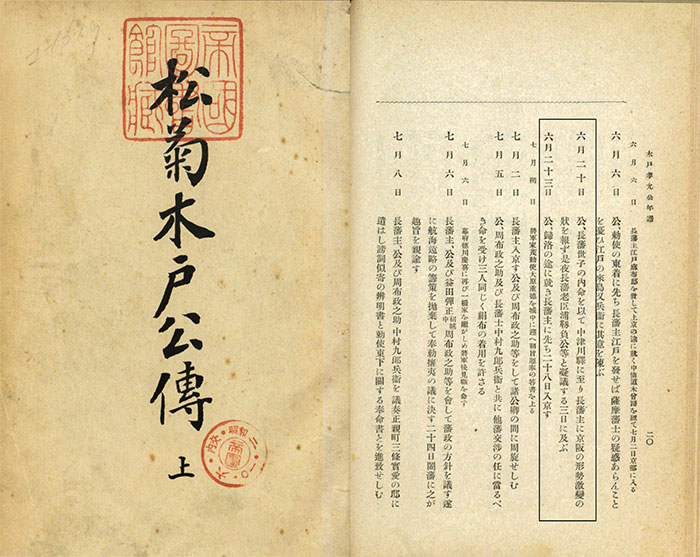 帝國
圖書
館藏
松菊木戸公傳 上
昭和二・一〇・六・内交
木戸孝允公年譜
二〇
六月六日 長藩主江戸麻布邸を發して上京の途に就く中仙道木曾路を經て七月二日京都に入る
六月六日 公、勅使の東着に先ち長藩主江戸を發せば薩摩藩士の疑惑あらんこと
を憂ひ江戸の來島又兵衞に其意を陳ぶ
六月二十日 公、長藩世子の内命を以て中津川驛に至り長藩主に京阪の形勢激變の
狀を報ず是夜長藩老臣浦靱負公等と凝議する三日に及ぶ
六月二十三日 公、歸洛の途に就き長藩主に先ち二十八日入京す
七月朔日 將軍家茂勅使大原重德を城中に迎へ勅旨遵奉の答書を上る
七月二日 長藩主入京す公及び周布政之助等をして諸公卿の間に周旋せしむ
七月五日 公、周布政之助及び長藩士中村九郎兵衞と共に他藩交渉の任に當るべ
き命を受け三人同じく絹布の着用を許さる
七月六日 幕府德川慶喜に再び一橋家を繼がしめ將軍後見職を命ず
七月六日 長藩主、公及び益田彈正 周布政之助等を會して藩政の方針を議す遂
に航海遠略の籌策を抛棄して奉勅攘夷の議に決す二十四日闔藩に之が
趣旨を親諭す
七月八日 長藩主、公及び周布政之助 中村九郎兵衞を 議奏正親町三條實愛の邸に
遣はし謗詞似寄の辨明書と勅使東下に關する奉命書とを進致せしむ